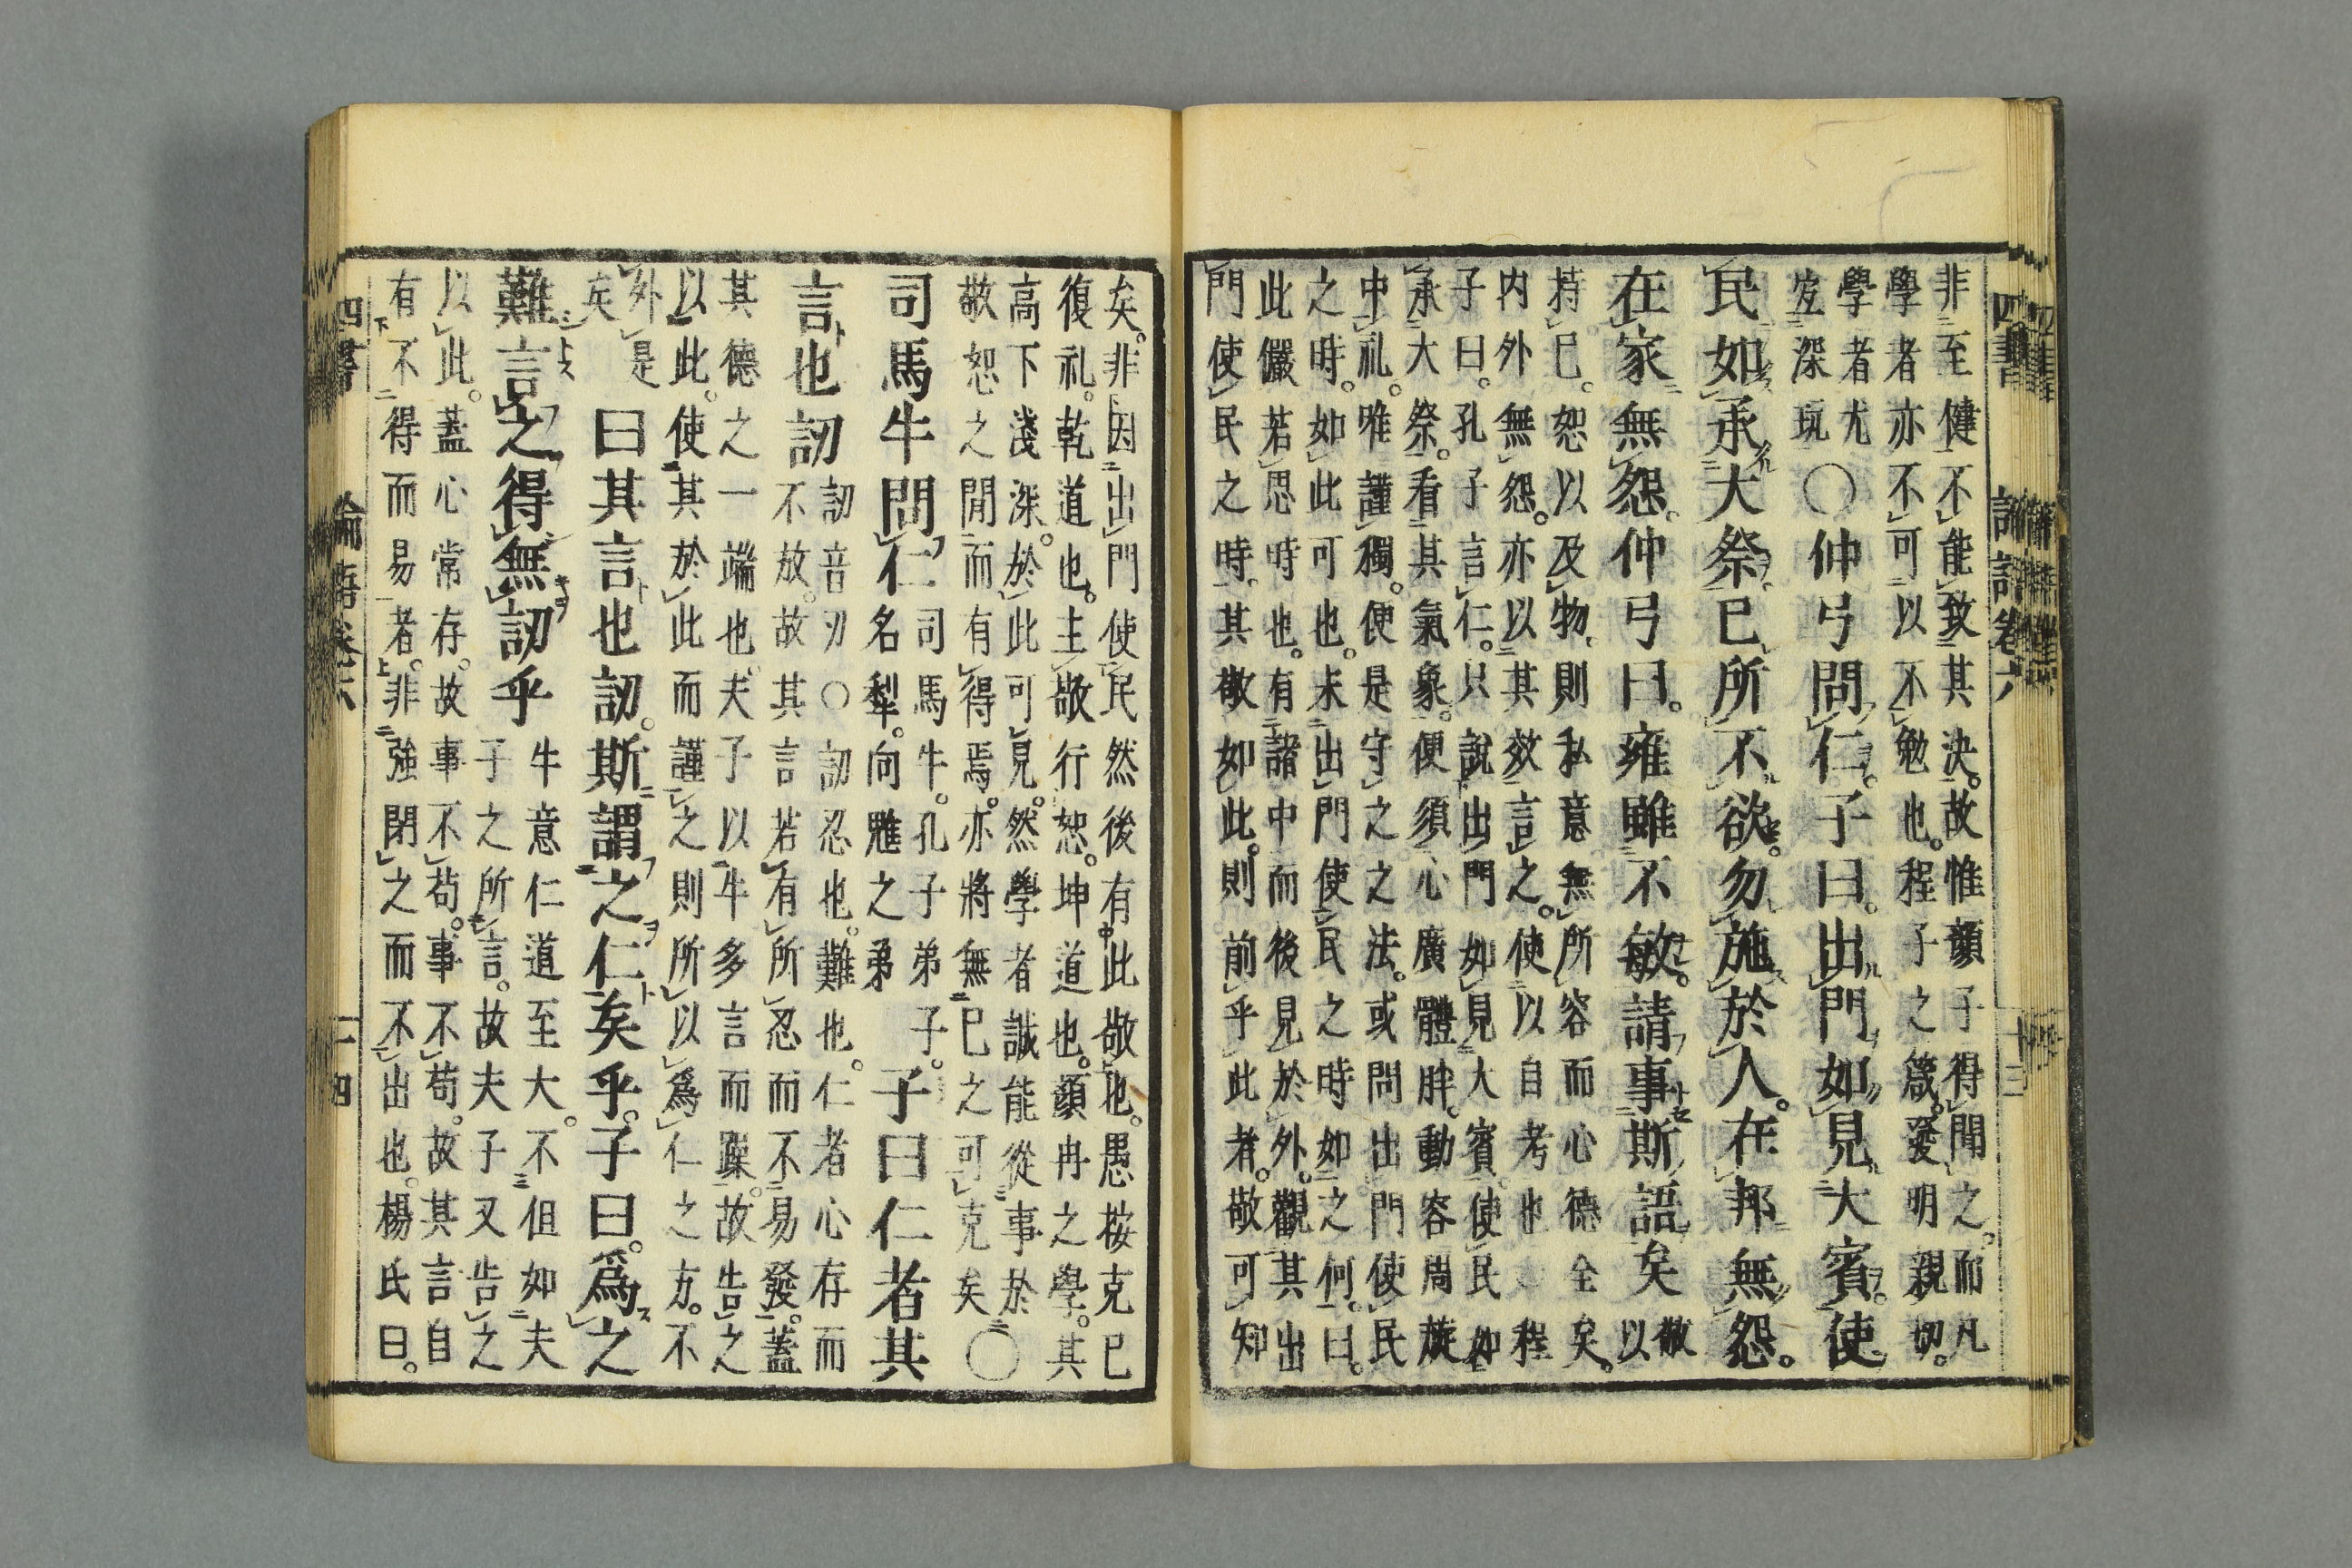 四書 論語卷六 十三
非至健不能致其決。故惟顏子得聞之。而凡
學者亦不可以不勉也。程子之箴。發明親切。
學者尤
宜深玩
〇仲弓問仁。子曰。出門如見大賓。使
民如承大祭。己所不欲。勿施於人。在邦無怨。
在家無怨。仲弓曰。雍雖不敏。請事斯語矣
敬
以
持己。恕以及物。則私意無所容而心德全矣。
内外無怨。亦以其效言之。使以自考也 程
子曰。孔子言仁。只說出門如見大賓。使民如
承大祭。看其氣象。便須心廣體胖。動容周旋
中礼。唯謹獨。便是守之之法。或問出門使民
之時。如此可也。未出門使民之時如之何。曰。
此儼若思時也。有諸中而後見於外。觀其出
門使民之時。其敬如此。則前乎此者。敬可知
矣。非因出門使民然後有此敬也。愚按克己
復礼。乾道也。主敬行恕。坤道也。顏冉之學。其
高下淺深。於此可見。然學者誠能從事於
敬恕之間而有得焉。亦將無己之可克矣
〇
司馬牛問仁
司馬牛。孔子弟子。
名犂。向魋之弟
子曰仁者其
言也訒
訒音刃〇訒忍也。難也。仁者心存而
不放。故其言若有所忍而不易發。蓋
其德之一端也。夫子以牛多言而躁。故告之
以此。使其於此而謹之則所以爲仁之方。不
外是
矣
曰其言也訒。斯謂之仁矣乎。子曰。爲之
難言之得無訒乎
牛意仁道至大。不但如夫
子之所言。故夫子又告之
以此。蓋心常存。故事不苟。事不苟。故其言自
有不得而易者。非強閉之而不出也。楊氏曰。
四書 論語卷六 十四